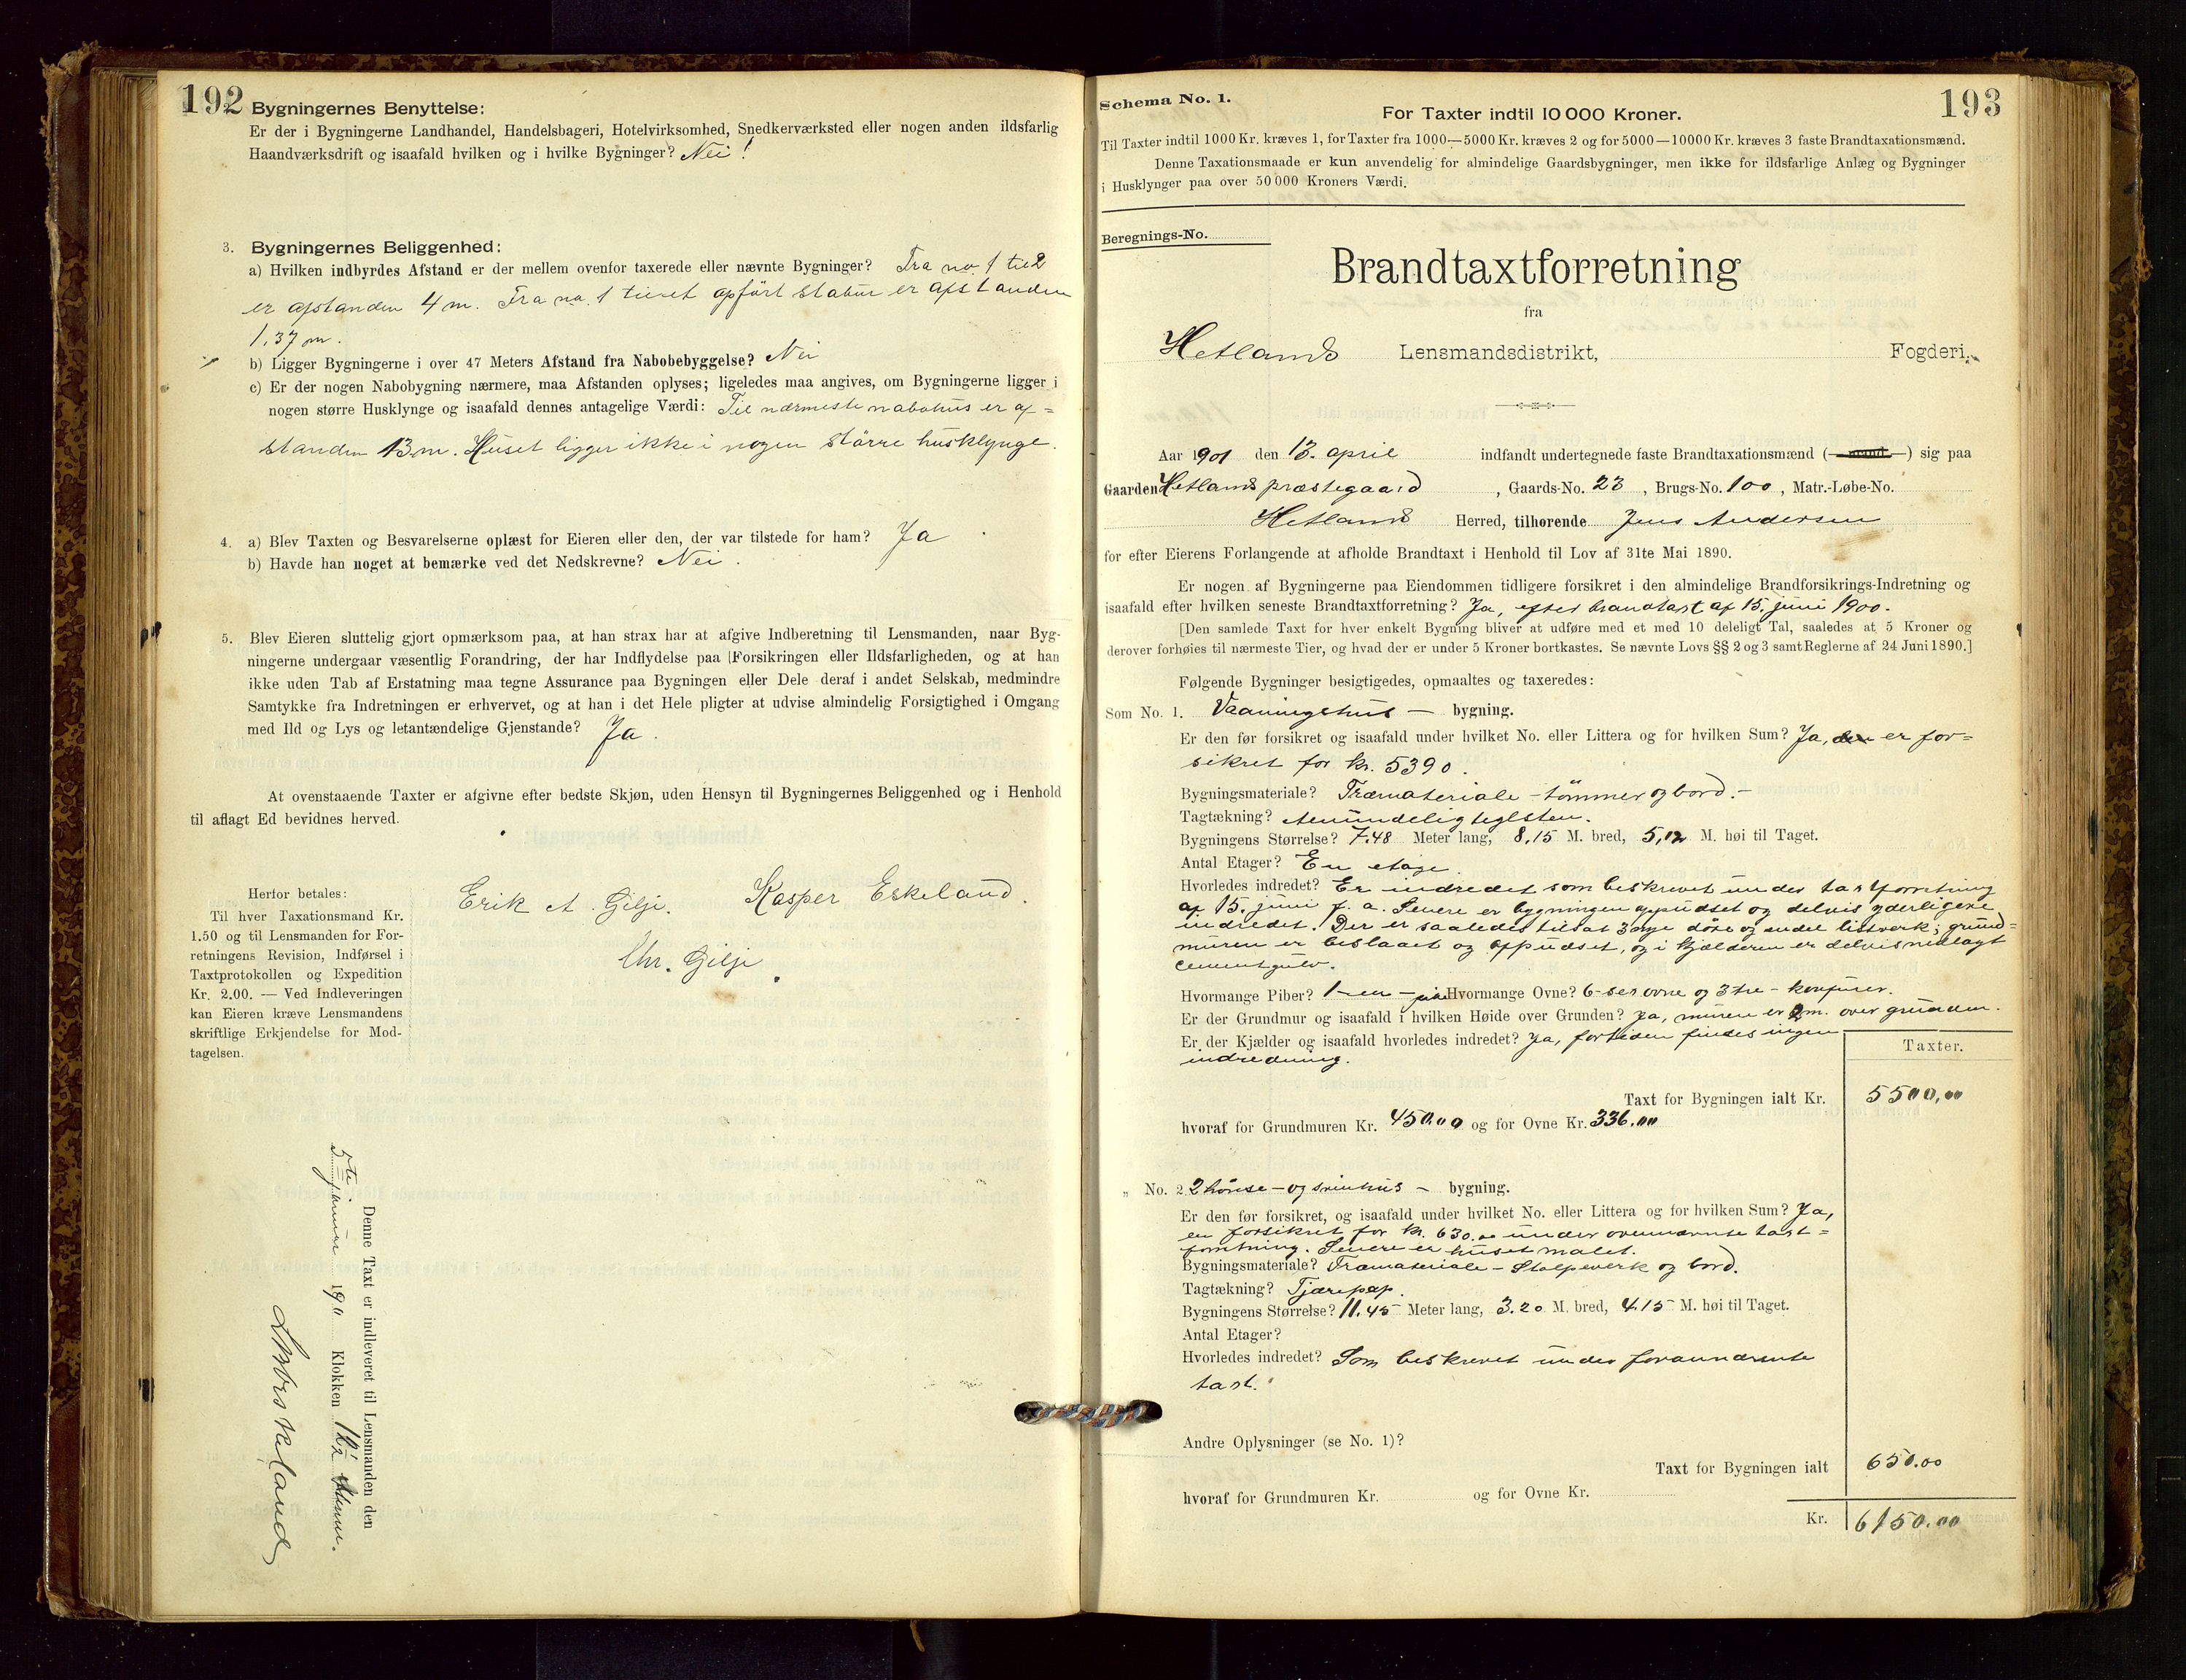 192
Bygningernes Benyttelse:
Er der i Bygningerne Landhandel, Handelsbageri, Hotelvirksomhed, Snedkerværksted eller nogen anden ildsfarlig
Haandværksdrift og isaafald hvilken og i hvilke Bygninger? Nei!
3. Bygningernes Beliggenhed:
a) Hvilken indbyrdes Afstand er der mellem ovenfor taxerede eller nævnte Bygninger? Fra no. 1 til 2
er afstanden 4 m. Fra no. 1 til et opført stabur er afstanden
1,37 m.
b) Ligger Bygningerne i over 47 Meters Afstand fra Nabobebyggelse? Nei
c) Er der nogen Nabobygning nærmere, maa Afstanden oplyses; ligeledes maa angives, om Bygningerne ligger i
nogen større Husklynge og isaafald dennes antagelige Værdi: Til nærmeste nabohus er af=
standen 13 m. Huset ligger ikke i nogen större husklynge.
4. a) Blev Taxten og Besvarelserne oplæst for Eieren eller den, der var tilstede for ham? Ja
b) Havde han noget at bemærke ved det Nedskrevne? Nei.
5. Blev Eieren sluttelig gjort opmærksom paa, at han strax har at afgive Indberetning til Lensmanden, naar Byg-
ningerne undergaar væsentlig Forandring, der har Indflydelse paa Forsikringen eller Ildsfarligheden, og at han
ikke uden Tab af Erstatning maa tegne Assurance paa Bygningen eller Dele deraf i andet Selskab, medmindre
Samtykke fra Indretningen er erhvervet, og at han i det Hele pligter at udvise almindelig Forsigtighed i Omgang
med Ild og Lys og letantændelige Gjenstande? Ja.
At ovenstaaende Taxter er afgivne efter bedste Skjøn, uden Hensyn til Bygningernes Beliggenhed og i Henhold
til aflagt Ed bevidnes herved.
Erik A. Gilje. Kasper Eskeland.
Chr. Gilje.
Herfor betales:
Til hver Taxationsmand Kr.
1.50 og til Lensmanden for For-
retningens Revision, Indførsel i
Taxtprotokollen og Expedition
Kr. 2.00. — Ved Indleveringen
kan Eieren kræve Lensmandens
skriftlige Erkjendelse for Mod-
tagelsen.
Denne Taxt er indleveret til Lensmanden den
5te 190 Klokken 12½
193
Schema No. 1.
For Taxter indtil 10 000 Kroner.
Til Taxter indtil 1000 Kr. kræves 1, for Taxter fra 1000—5000 Kr. kræves 2 og for 5000—10000 Kr. kræves 3 faste Brandtaxationsmænd.
Denne Taxationsmaade er kun anvendelig for almindelige Gaardsbygninger, men ikke for ildsfarlige Anlæg og Bygninger
i Husklynger paa over 50 000 Kroners Værdi.
Beregnings-No.
Brandtaxtforretning
fra
Hetlands Lensmandsdistrikt, Fogderi.
Aar 1901 den 13. april indfandt undertegnede faste Brandtaxationsmænd (— mand —) sig paa
Gaarden Hetlands præstegaard, Gaards-No. 23, Brugs-No. 100, Matr.-Løbe-No.
Hetland Herred, tilhørende Jens Andersen
for efter Eierens Forlangende at afholde Brandtaxt i Henhold til Lov af 31te Mai 1890.
Er nogen af Bygningerne paa Eiendommen tidligere forsikret i den almindelige Brandforsikrings-Indretning og
isaafald efter hvilken seneste Brandtaxtforretning? Ja, efter brandtaxt af 15. juni 1900.
[Den samlede Taxt for hver enkelt Bygning bliver at udføre med et med 10 deleligt Tal, saaledes at 5 Kroner og
derover forhøies til nærmeste Tier, og hvad der er under 5 Kroner bortkastes. Se nævnte Lovs §§ 2 og 3 samt Reglerne af 24 Juni 1890.]
Følgende Bygninger besigtigedes, opmaaltes og taxeredes:
Som No. 1. Vaaningshus — bygning.
Er den før forsikret og isaafald under hvilket No. eller Littera og for hvilken Sum? Ja, den er for=
sikret for kr. 5390.
Bygningsmateriale? Træmateriale - tömmer og bord.-
Tagtækning? Almindelig teglsten.
Bygningens Størrelse? 7.48 Meter lang, 8,15 M. bred, 5,12 M. høi til Taget.
Antal Etager? En etage.
Hvorledes indredet? Er indredet som beskrevet under taxtforretning
af 15. juni f. a. Senere er bygningen oppudset og delvis yderligere
indredet. Der er saaledes tilsat 3 nye döre og endel listverk; grund=
muren er beslaaet og oppudset, og i kjælderen er delvis nedlagt
cementgulv.
Hvormange Piber? 1 - en - pibe Hvormange Ovne? 6 - sex ovne og 3 tre - komfurer.
Er der Grundmur og isaafald i hvilken Høide over Grunden? Ja, muren er 2 m. over grunden.
Er der Kjælder og isaafald hvorledes indredet? Ja, for tiden findes ingen
indredning.
Taxter.
Taxt for Bygningen ialt Kr. 5500,00
hvoraf for Grundmuren Kr. 450.00 og for Ovne Kr. 336.00
„ No. 2 2 hönse- og svinhus - bygning.
Er den før forsikret, og isaafald under hvilket No. eller Littera og for hvilken Sum? Ja,
er forsikret for kr. 630.00 under ovennævnte taxt=
forretning. Senere er huset malet.
Bygningsmateriale? Træmateriale - Stolpeverk og bord.
Tagtækning? Tjærepap.
Bygningens Størrelse? 11.45 Meter lang, 3.20 M. bred, 4.15 M. høi til Taget.
Antal Etager?
Hvorledes indredet? Som beskrevet under forannævnte
taxt.
Andre Oplysninger (se No. 1)?
Taxt for Bygningen ialt 650.00
hvoraf for Grundmuren Kr. og for Ovne Kr.
Kr. 6150.00